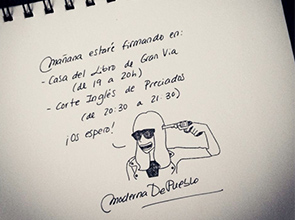 Mañana estaré firmando en:
- Casa del Libro de Gran Vía
(de 19 a 20h)
- Corte Inglés de Preciados
(de 20:30 a 21:30)
¡Os espero!
Moderna De Pueblo